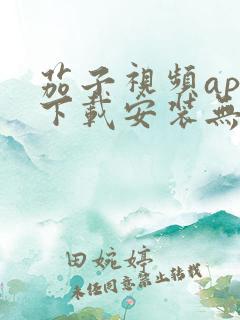 茄子視頻ap
下載安裝無
田婉婷
未经同意禁止转载